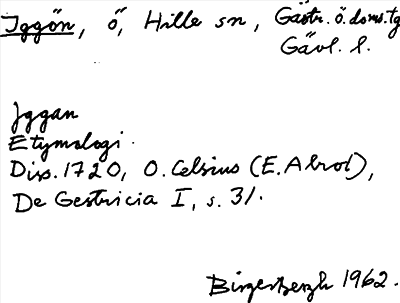 Iggön, ö, Hille sn, Gästr. ö. doms.tg
Gävl. l.
Iggan
Etymologi.
Diss. 1720, O. Celsius (E. Alrot),
De Gestricia I, s. 31.
Birger Bergh 1962.